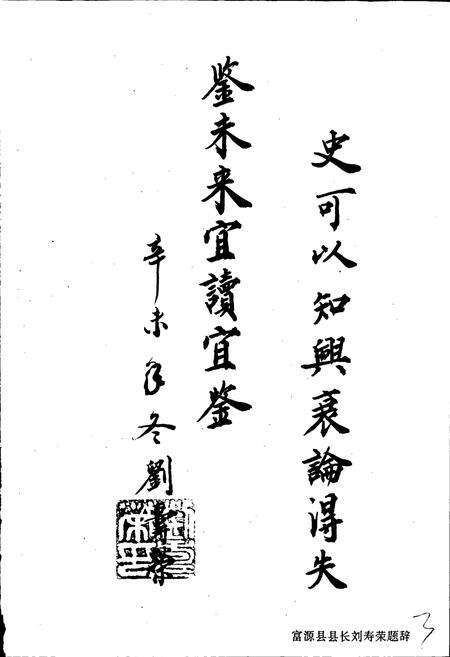 史可以知興衰論得失
鉴未来宜讀宜鉴
辛未年冬劉壽榮
富源县县长刘寿荣题辞
3